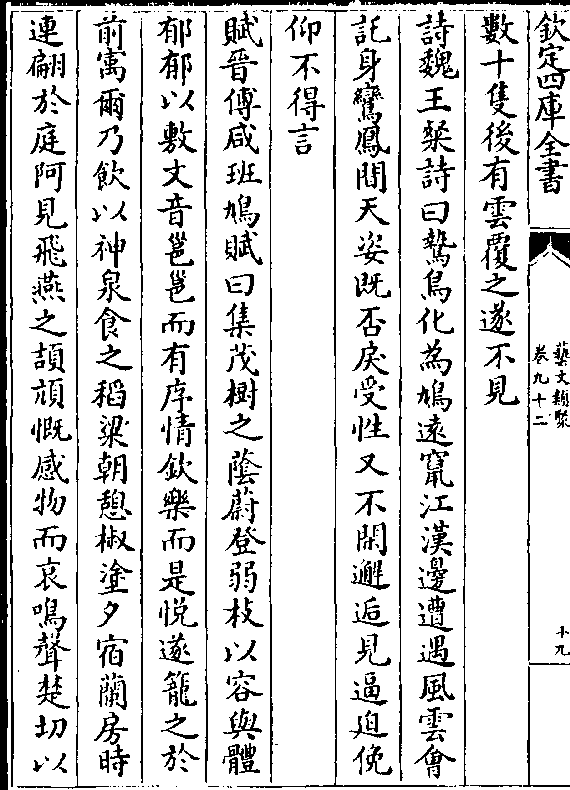 欽定四庫全書
藝文類聚
卷九十二
十九
數十隻後有雲覆之遂不見
詩魏王粲詩曰鷙鳥化為鳩遠竄江漢邊遭遇風雲會
託身鸞鳳間天姿既否戾受性又不閑邂逅見逼迫俛
仰不得言
賦晉傅咸班鳩賦曰集茂樹之蔭蔚登弱枝以容與體
郁郁以敷文音邕邕而有序情欽樂而是悅遂籠之於
前寓爾乃飲以神泉食之稻粱朝憩椒塗夕宿蘭房時
連翩於庭阿見飛燕之頡頏慨感物而哀鳴聲楚切以